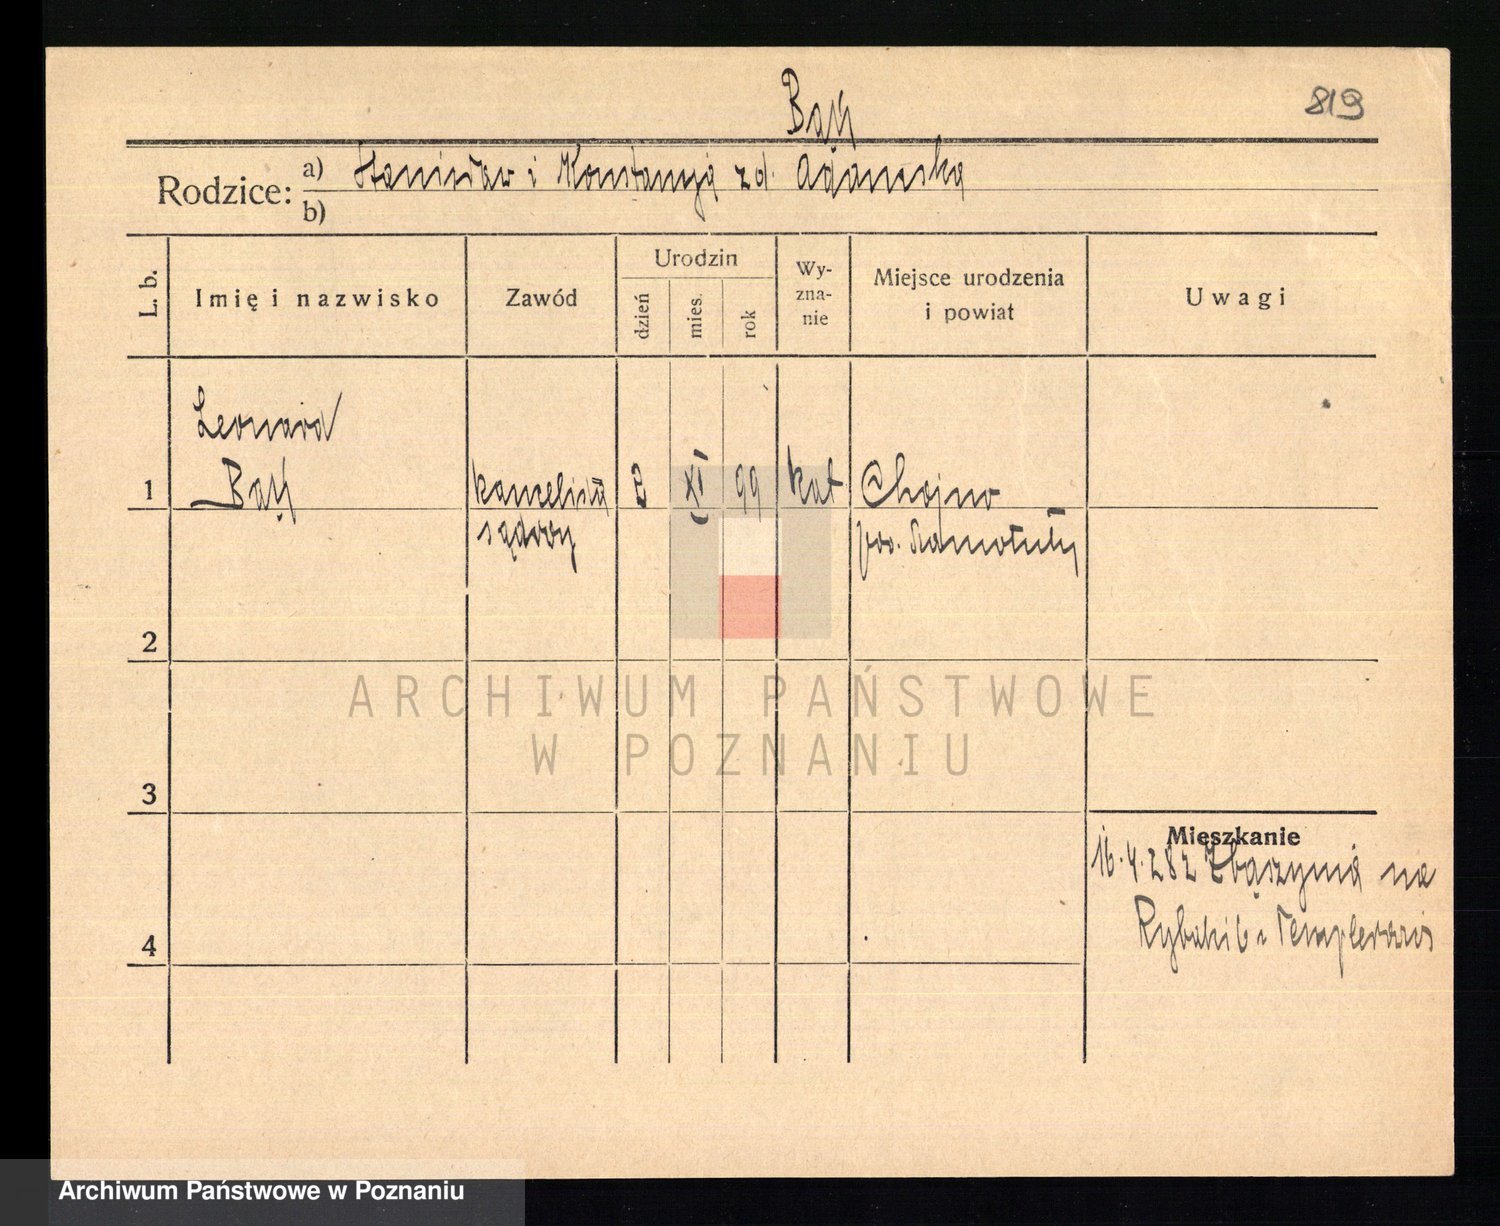 Bąk
819
Rodzice:
a) Stanisław i Konstancja zd. Adamska
b)
L. b.
Imię i nazwisko
Zawód
Urodzin
dzień
mies.
rok
Wy-
zna-
nie
Miejsce urodzenia
i powiat
Uwagi
Leonard
1 Bąk kancelista 2 XI 99 kat Chojno
sądowy pow. Szamotuły
2
3
4
Mieszkanie
16.4.28 z Zbąszynia na
Rybaki 6
ARCHIWUM PAŃSTWOWE
W POZNANIU
Archiwum Państwowe w Poznaniu